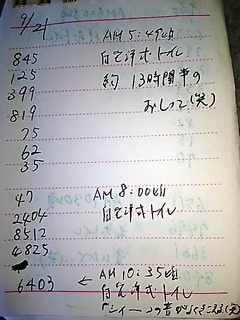 9/21
AM 5:49頃
845 自宅洋式トイレ
125 約13時間半の
399 おしっこ(笑)
819
75
62
35
47 AM 8:00頃
2404 自宅洋式トイレ
8512
4825
6403 ← AM 10:35頃
自宅洋式トイレ
「シィーーーの音がよくきこえる(笑)